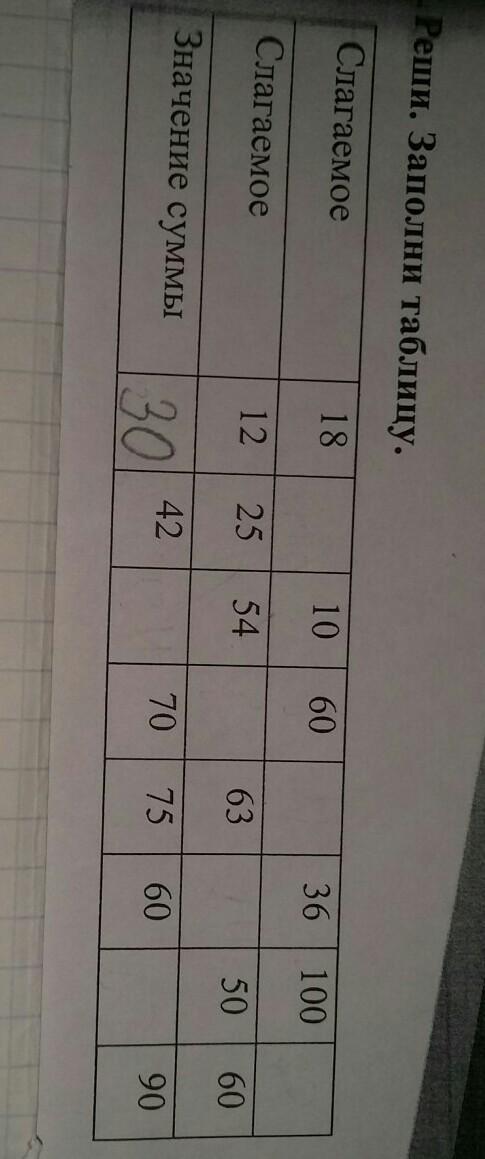 Реши. Заполни таблицу.
Слагаемое 18 10 60 36 100
Слагаемое 12 25 54 63 50 60
Значение суммы 30 42 70 75 60 90